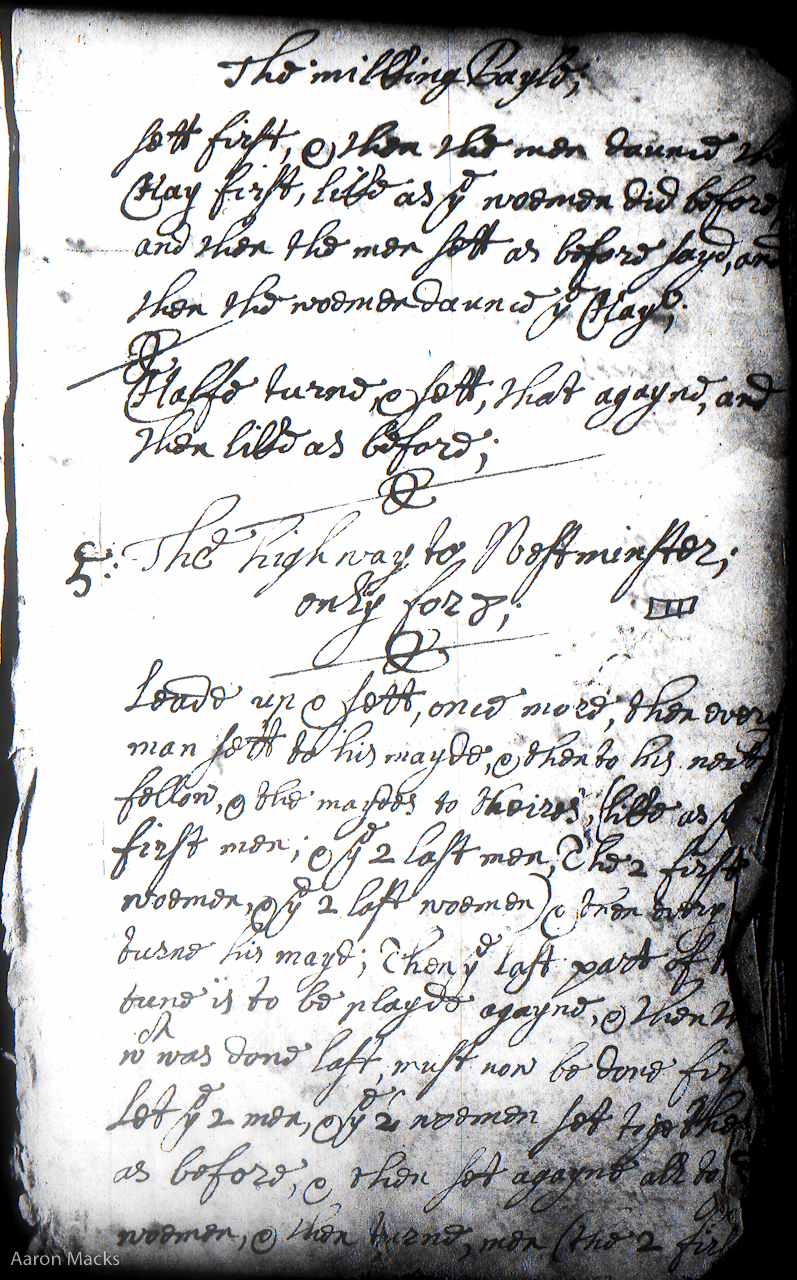 The milking Payle;
sett first, & then the men daunce the
Hay first, like as ye woemen did before,
and then the men sett as before sayd, and
then the woemen daunce ye Hay;
Halfe turne, & sett, that agayne, and
then like as before;
5: The high way to Westminster;
only for 8;
Leade up & sett, once more, then every
man sett to his mayde, & then to his next
fellow, & the maydes to theires, (like as ye
first men; & ye 2 last men, The 2 first
woemen, & ye 2 last woemen) & then every
turne his mayd; Then ye last part of
tune is to be playde agayne, & then
wch was done last, must now be done first
Let ye 2 men, & ye 2 woemen sett together
as before, & then set agayne all to
woemen, & then turne, men (the 2 first
Aaron Macks